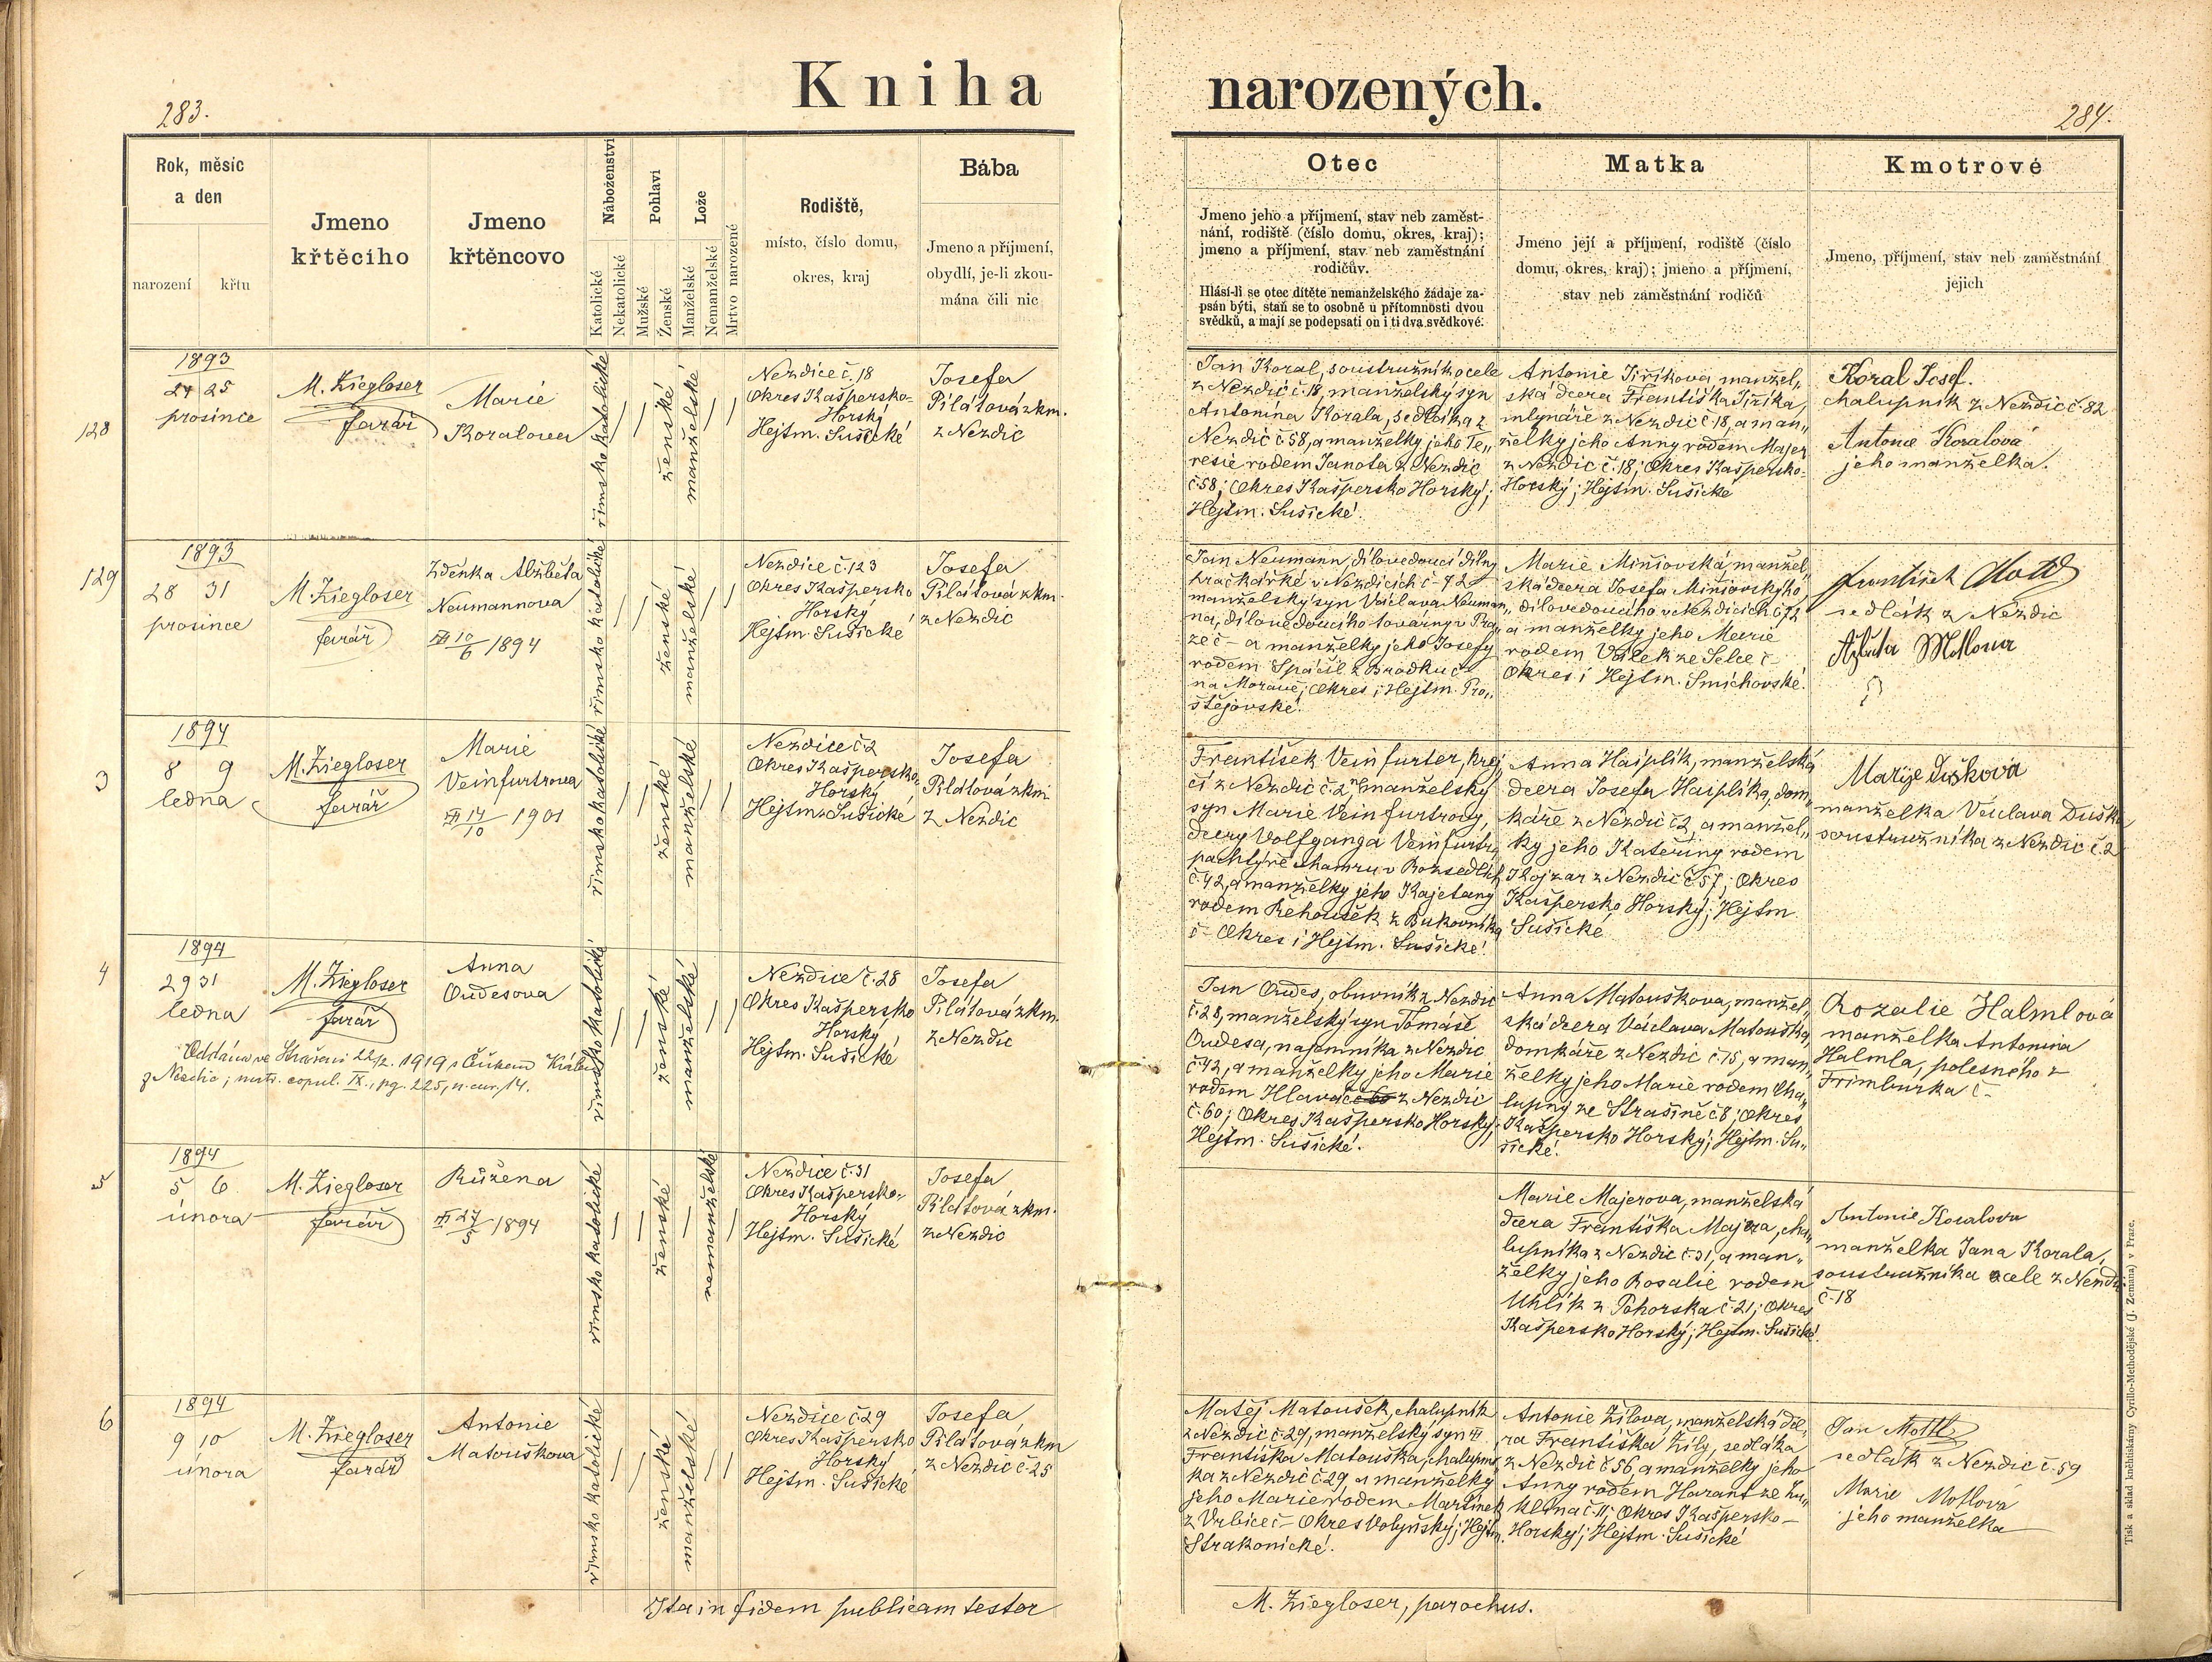 283.
Kniha narozených.
284.
Rok, měsíc
a den
narození křtu
Jmeno
křtěcího
Jmeno
křtěncovo
Náboženství
Katolické
Nekatolické
Pohlaví
Mužské
Ženské
Lože
Manželské
Nemanželské
Mrtvo narozené
Rodiště,
místo, číslo domu,
okres, kraj
Bába
Jmeno a příjmení,
obydlí, je-li zkou-
mána čili nic
Otec
Jmeno jeho a příjmení, stav neb zaměst-
nání, rodiště (číslo domu, okres, kraj);
jmeno a příjmení, stav neb zaměstnání
rodičův.
Hlásí-li se otec dítěte nemanželského žádaje za-
psán býti, staň se to osobně u přítomnosti dvou
svědků, a mají se podepsati on i ti dva svědkové.
Matka
Jmeno její a příjmení, rodiště (číslo
domu, okres, kraj); jmeno a příjmení,
stav neb zaměstnání rodičů
Kmotrové
Jmeno, příjmení, stav neb zaměstnání
jejich
128
1893
24 25
prosince
M. Ziegloser
farář
Marie
Koralova
římsko katolické
ženské
manželské
Nezdice č. 18
Okres Kašpersko-
Horský
Hejtm. Sušické
Josefa
Pilátová zkm.
z Nezdic
Jan Koral, soustružník ocele
z Nezdic č. 18, manželský syn
Antonína Korala, sedláka z
Nezdic č. 58, a manželky jeho Te„
resie rodem Janota z Nezdic
č. 58; Okres Kašpersko Horský;
Hejtm. Sušické.
Antonie Jiříkova, manžel„
ská dcera Františka Jiříka,
mlynáře z Nezdic č. 18, a man„
želky jeho Anny rodem Majer
z Nezdic č. 18; Okres Kašpersko-
Horský; Hejtm. Sušické
Koral Josef.
chalupník z Nezdic č. 82
Antonie Koralová
jeho manželka.
129
1893
28 31
prosince
M. Ziegloser
farář
Zdeňka Alžběta
Neumannova
VII 10/6 1894
římsko katolické
ženské
manželské
Nezdice č. 123
Okres Kašpersko
Horský
Hejtm. Sušické
Josefa
Pilátová zkm.
z Nezdic
Jan Neumann, dílovedoucí dílny
hračkářské v Nezdicích č. 72
manželský syn Václava Neuman„
na, dílovedoucího továrny v Pra„
ze č – a manželky jeho Josefy
rodem Spáčil z Brodku č –
na Moravě; Okres i Hejtm. Pro„
stějovské.
Marie Miňiovská, manžel„
ská dcera Josefa Miňiovského,
dílovedoucího v Nezdicích č. 72
a manželky jeho Marie
rodem Válek ze Selce č –
Okres i Hejtm. Smíchovské.
František Mottl
sedlák z Nezdic
3
1894
8 9
ledna
M. Ziegloser
farář
Marie
Veinfurtrova
VII 14/10 1901
římsko katolické
ženské
manželské
Nezdice č. 2
Okres Kašpersko-
Horský
Hejtm. Sušické
Josefa
Pilátová zkm
z Nezdic
František Veinfurter, krej„
čí z Nezdic č. 2, nemanželský
syn Marie Veinfurtrovy,
dcery Volfganga Veinfurtra
pachtýře hamru v Rozsedlích
č. 42, a manželky jeho Kajetany
rodem Řehoušek z Bukovníka
č – Okres i Hejtm. Sušické.
Anna Hajplík, manželská
dcera Josefa Hajplíka, dom„
káře z Nezdic č. 2, a manžel„
ky jeho Kateřiny rodem
Kojzar z Nezdic č. 57; Okres
Kašpersko Horský; Hejtm
Sušické
Marije Dušková
manželka Václava Duška
soustružníka z Nezdic č. 2
4
1894
29 31
ledna
M. Ziegloser
farář
Anna
Oudesova
Oddána ve Strašíni 22/2. 1919 s
z Nezdic; matr. copul. IX., pg. 225, n. cur. 14.
římsko katolické
ženské
manželské
Nezdice č. 28
Okres Kašpersko
Horský
Hejtm. Sušické
Josefa
Pilátová zkm.
z Nezdic
Jan Oudes, obuvník z Nezdic
č. 28, manželský syn Tomáše
Oudesa, nájemníka z Nezdic
č. 42, a manželky jeho Marie
rodem Hlaváč č 60 z Nezdic
č. 60; Okres Kašpersko Horský;
Hejtm. Sušické.
Anna Matouškova, manžel„
ská dcera Václava Matouška,
domkáře z Nezdic č. 15, a man„
želky jeho Marie rodem Cha„
lupný ze Strašině č 8; Okres
Kašpersko Horský; Hejtm. Su„
šické.
Rozalie Halmlová
manželka Antonína
Halmla, polesného z
Frimburka č –
5
1894
5 6
února
M. Ziegloser
farář
Růžena
VII 27/5 1894
římsko katolické
ženské
nemanželské
Nezdice č. 31
Okres Kašpersko-
Horský
Hejtm. Sušické
Josefa
Pilátová zkm.
z Nezdic
Marie Majerova, manželská
dcera Františka Majera, cha„
lupníka z Nezdic č. 31, a man„
želky jeho Rosalie rodem
Uhlík z Pohorska č. 21; Okres
Kašpersko Horský; Hejtm. Sušické.
Antonie Koralova
manželka Jana Korala,
soustružníka ocele z Nezdic
č. 18
6
1894
9 10
února
M. Ziegloser
farář
Antonie
Matouškova
římsko katolické
ženské
manželské
Nezdice č. 29
Okres Kašpersko
Horský
Hejtm. Sušické
Josefa
Pilátová zkm
z Nezdic č. 25
Matěj Matoušek, chalupník
z Nezdic č. 29, manželský syn
Františka Matouška, chalupní
ka z Nezdic č. 29 a manželky
jeho Marie rodem Martínek
z Vrbice č – Okres Volyňský; Hejtm.
Strakonické.
Antonie Žílova, manželská dce„
ra Františka Žíly, sedláka
z Nezdic č 56, a manželky jeho
Anny rodem Harant ze Žu„
klína č. 11; Okres Kašpersko –
Horský; Hejtm. Sušické
Jan Mottl
sedlák z Nezdic č. 59
Marie Motlová
jeho manželka
Ita in fidem publicam testor
M. Ziegloser, parochus.
Tisk a sklad kněhtiskárny Cyrillo-Methodějské (J. Zeman) v Praze.